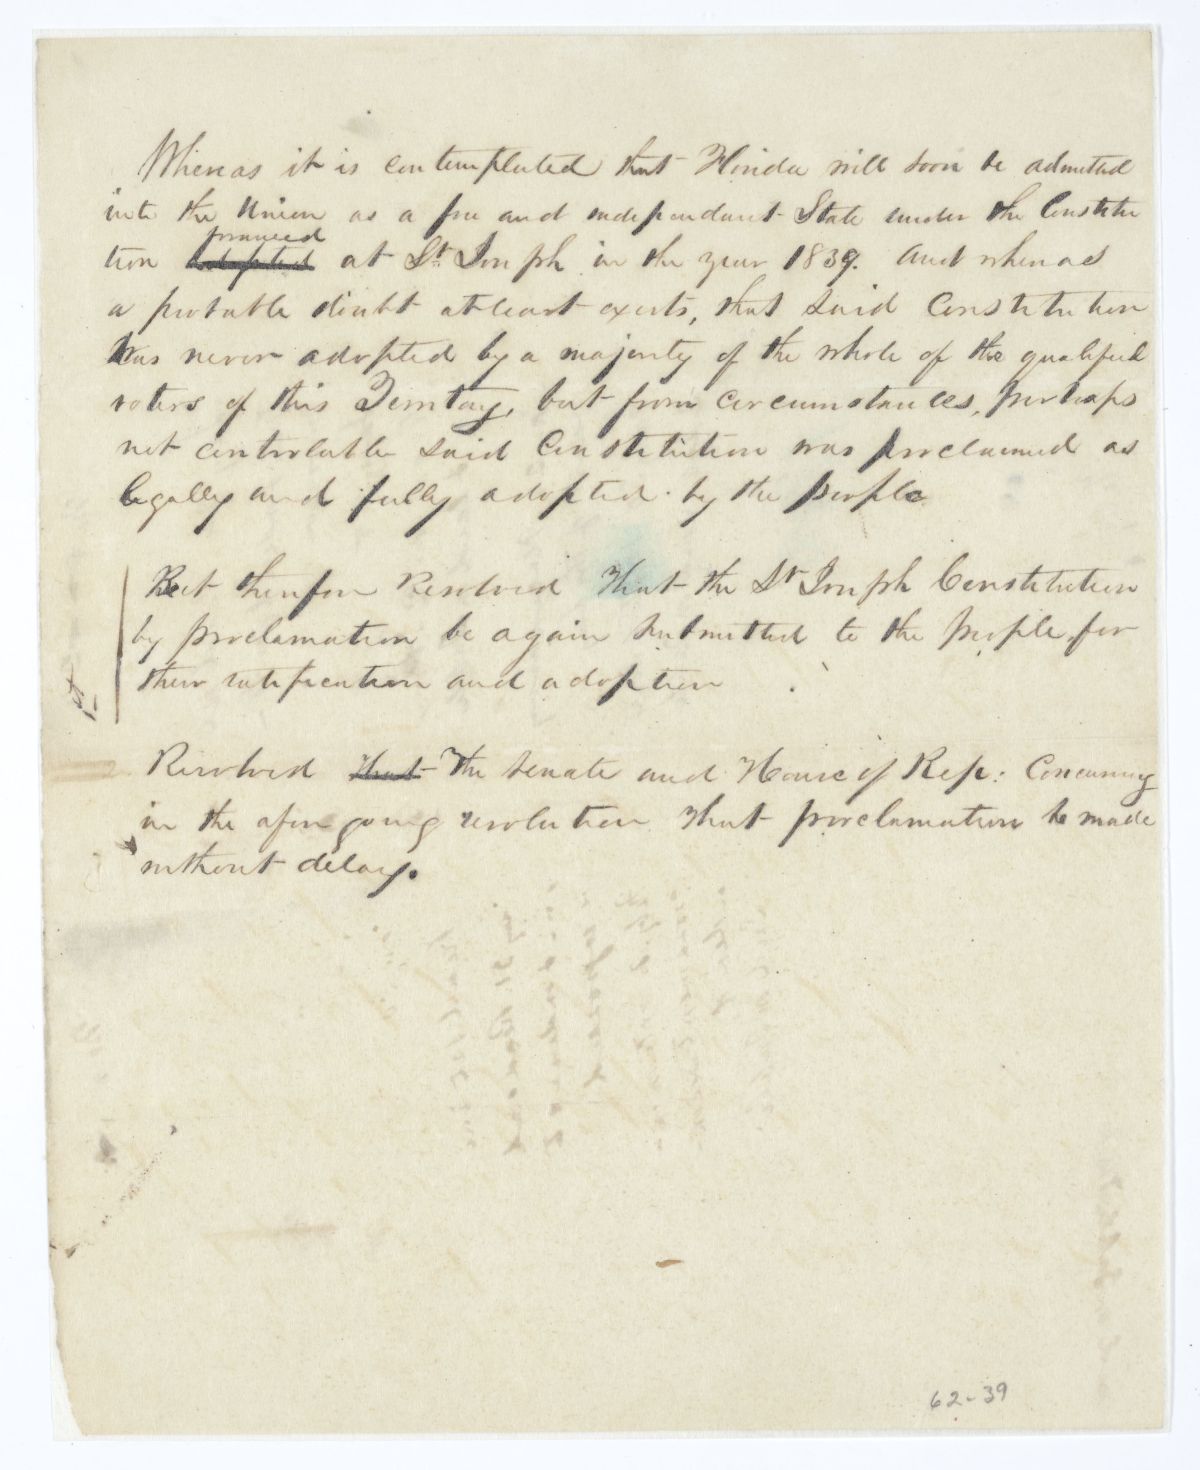 Whereas it is contemplated that Florida will soon be admitted
into the Union as a free and independant State under the Constitu
framed
tion adopted at St. Joseph in the year 1839. And whereas
a probable doubt at least exists, that said Constitution
was never adopted by a majority of the whole of the qualified
voters of this Territory, but from circumstances, perhaps
not controlable said Constitution was proclaimed as
legally and fully adopted by the people
Be it therefore Resolved That the St Joseph Constitution
by proclamation be again submitted to the people for
their ratification and adoption
1st
Resolved that The Senate and House of Rep: Concurring
in the afore going resolution that proclamation be made
without delay.
62-39